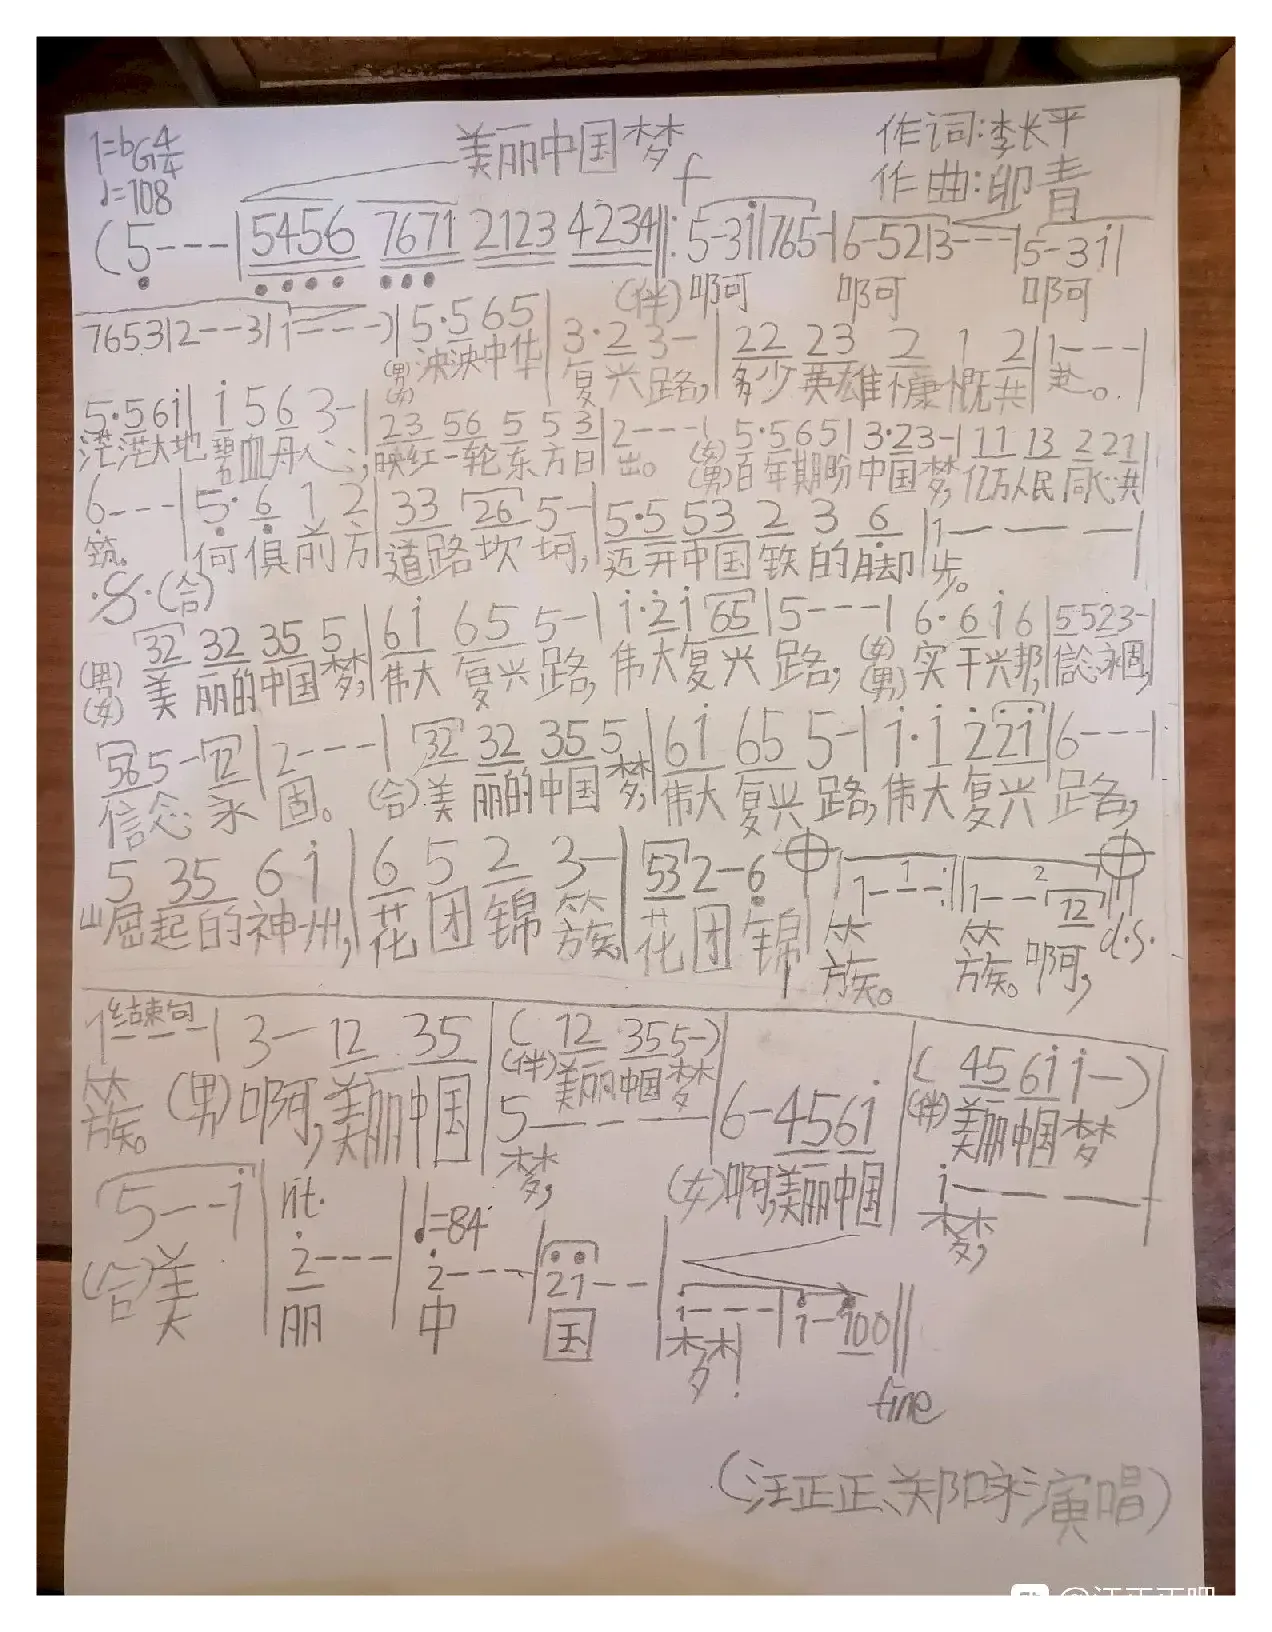 1=bG4/4 美丽中国梦 作词:李长平
♩=108 f 作曲:印青
(5---|5456 7671 2123 4234‖:5-3i|765-|6-52|3---|5-3i|
(伴)啊 啊 啊
7653|2--3|1---)|5·5 65|3·2 3-|22 23 2 1 2|1---|
(男女)泱泱中华复兴路,多少英雄慷慨共赴。
5·5 6i|i 5 6 3-|23 56 5 5 3|2---|5·5 65|3·2 3-|11 13 2 21|
茫茫大地碧血丹心,映红一轮东方日出。(女男)百年期盼中国梦,亿万人民同心共
6---|5·6 1 2|33 26 5-|5·5 53 2 3 6|1---|
筑。何俱前方道路坎坷,迈开中国铁的脚步。
·S·(合)
32 32 35 5|6i 65 5-|i·2i 65|5---|6·6 i 6|5 523-|
(男女)美丽的中国梦,伟大复兴路,伟大复兴路,(女男)实干兴邦,信念永固,
565-12|2---|32 32 35 5|6i 65 5-|i·i 2 2i|6---|
信念永固。(合)美丽的中国梦,伟大复兴路,伟大复兴路,
5 35 6 i|6 5 2 3-|53 2-6|1--1-:|1--2 12‖
崛起的神州,花团锦簇,花团锦簇。簇。啊, d.s.
结束句
1---|3-12 35|(12 355-)|6-456i|(45 6i i-)
(伴)美丽中国梦 (伴)美丽中国梦
5--- i---
簇。(男)啊,美丽中国梦,(女)啊,美丽中国梦,
5--i|rit. 2---|♩=84 2---|21--|i---|i-i00‖
(合)美丽中国梦!
fine
(汪正正、郑咏演唱)